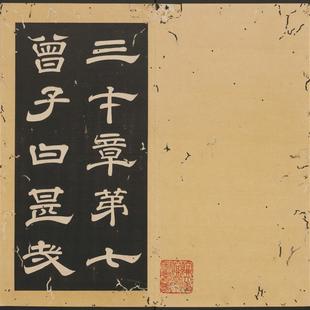 三才章第七
曾子曰甚哉